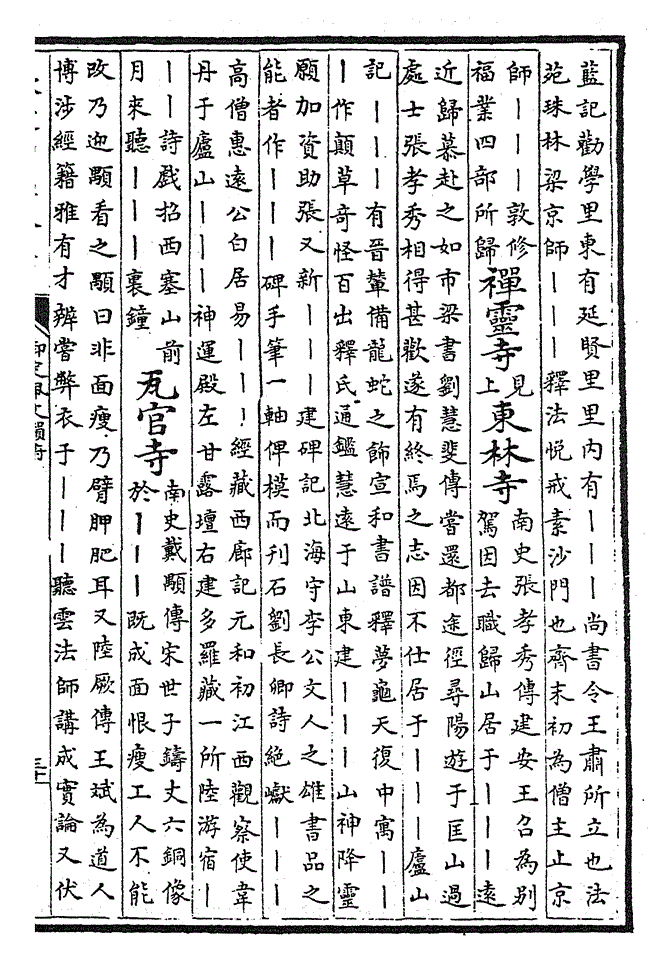 藍記勸學里東有延賢里里内有丨丨丨尚書令王肅所立也法
苑珠林梁京師丨丨丨釋法悅戒素沙門也齊末初為僧主止京
師丨丨丨敦修
福業四部所歸
禪靈寺
見
上
東林寺
南史張孝秀傳建安王召為别
駕因去職歸山居于丨丨丨遠
近歸慕赴之如市梁書劉慧斐傳嘗還都途徑尋陽遊于匡山過
處士張孝秀相得甚歡遂有終焉之志因不仕居于丨丨丨廬山
記丨丨丨有晉輦備龍蛇之飾宣和書譜釋夢龜天復中寓丨丨
丨作顛草奇怪百出釋氏通鑑慧遠于山東建丨丨丨山神降靈
願加資助張又新丨丨丨建碑記北海守李公文人之雄書品之
能者作丨丨丨碑手筆一軸俾模而刋石劉長卿詩絶巘丨丨丨
高僧惠遠公白居易丨丨丨經藏西廊記元和初江西觀察使韋
丹于廬山丨丨丨神運殿左甘露壇右建多羅藏一所陸游宿丨
丨丨詩戲招西塞山前
月來聽丨丨丨裏鐘
瓦官寺
南史戴顒傳宋世子鑄丈六銅像
於丨丨丨既成面恨瘦工人不能
改乃迎顒看之顒曰非面瘦乃臂胛肥耳又陸厥傳王斌為道人
博涉經籍雅有才辨嘗弊衣于丨丨丨聽雲法師講成實論又伏